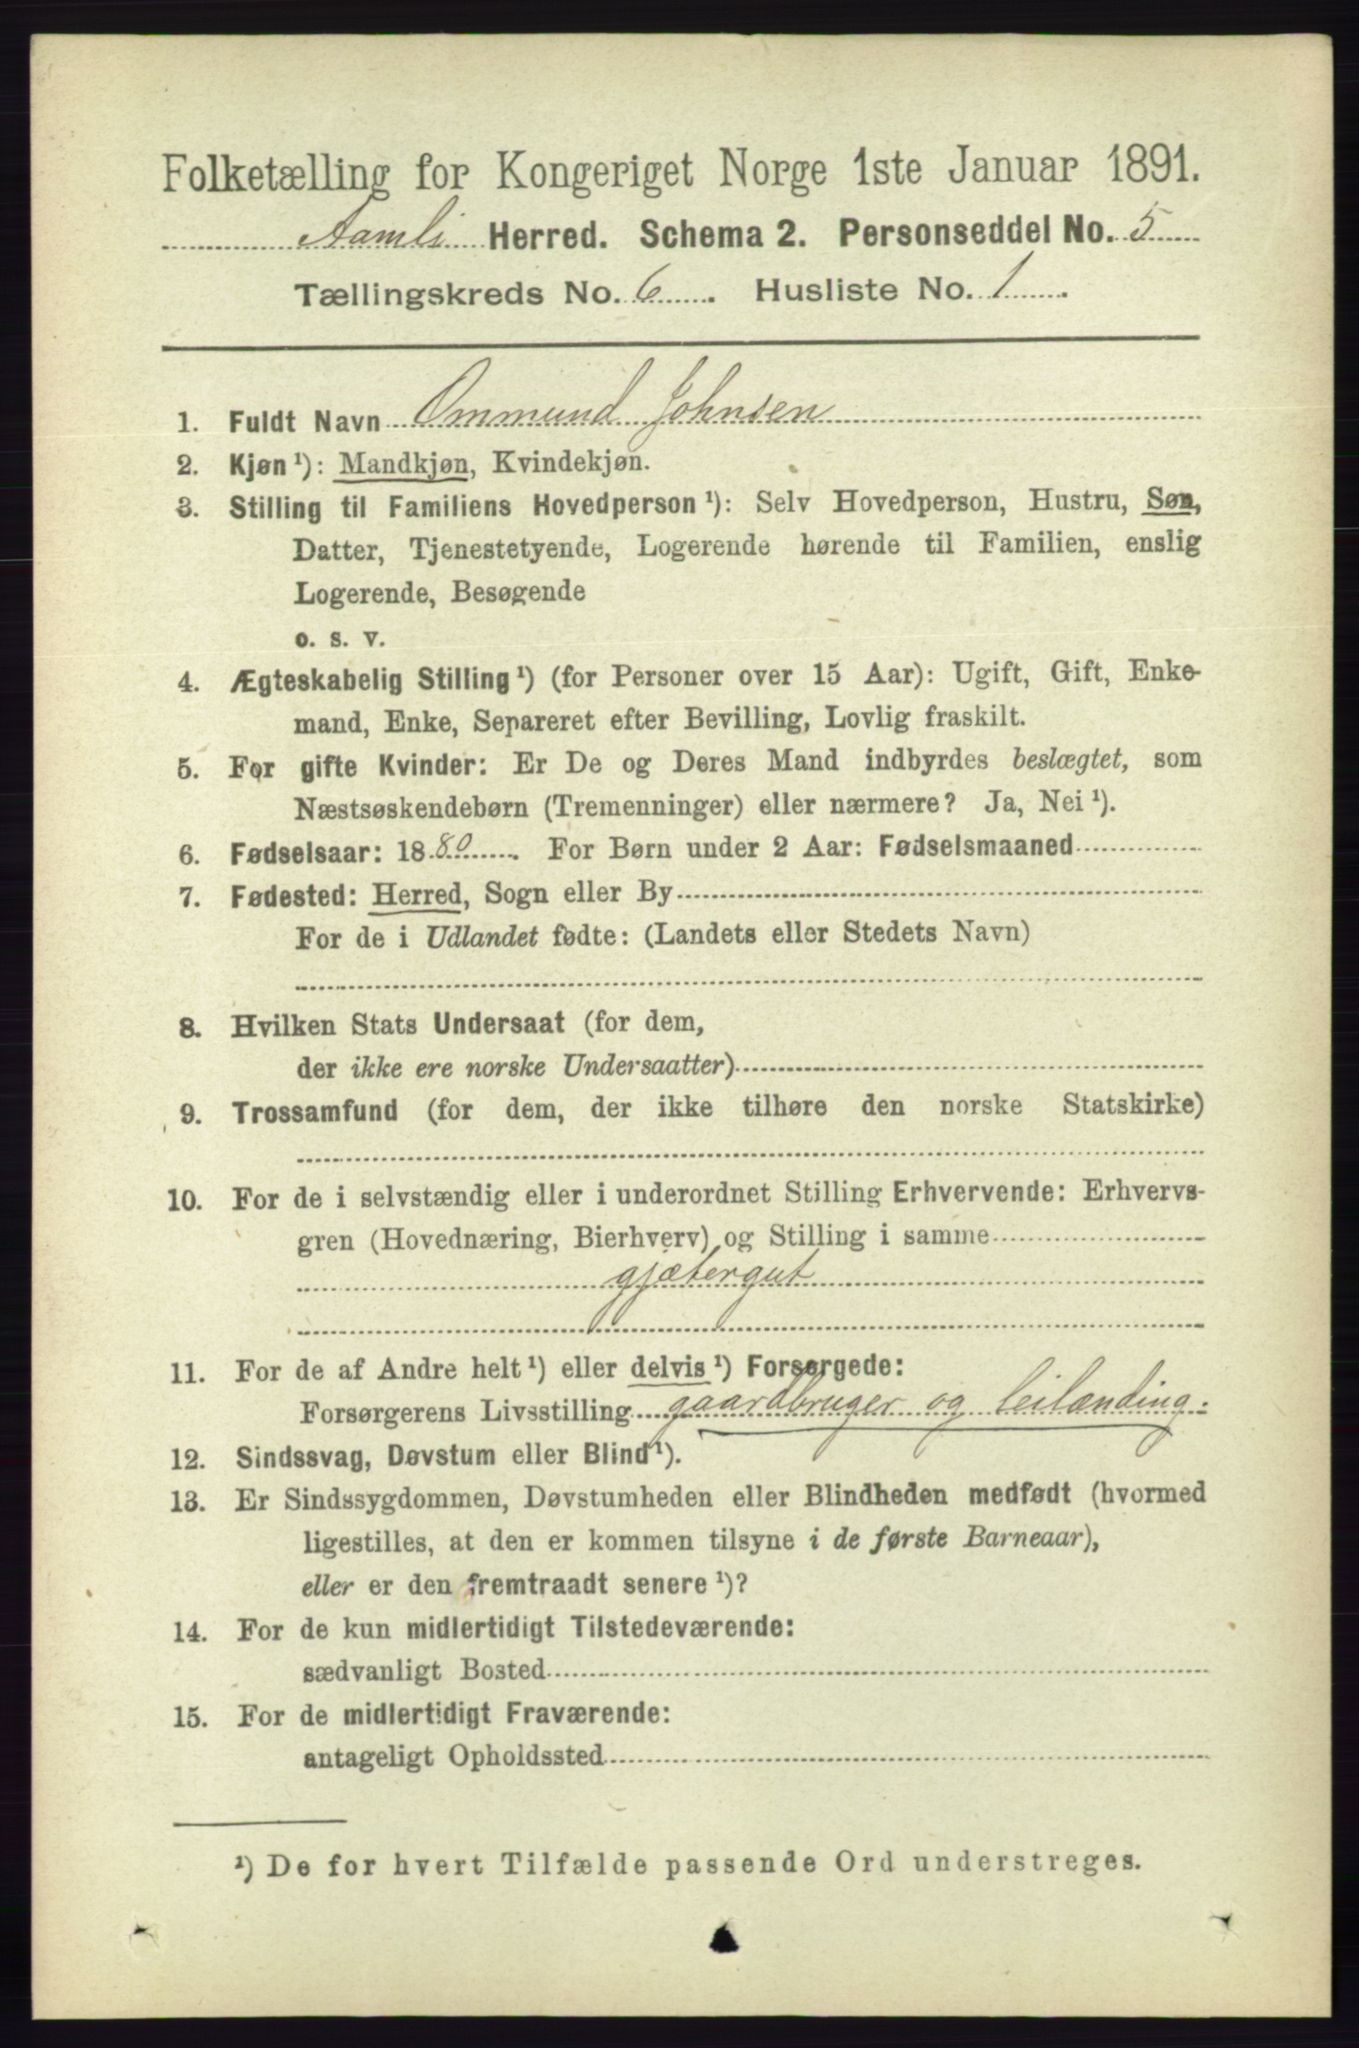 Folketælling for Kongeriget Norge 1ste Januar 1891.
Aamli Herred. Schema 2. Personseddel No. 5
Tællingskreds No. 6. Husliste No. 1.
1. Fuldt Navn Ommund Johnsen
2. Kjøn ¹): Mandkjøn, Kvindekjøn.
3. Stilling til Familiens Hovedperson ¹): Selv Hovedperson, Hustru, Søn,
Datter, Tjenestetyende, Logerende hørende til Familien, enslig
Logerende, Besøgende
o. s. v.
4. Ægteskabelig Stilling ¹) (for Personer over 15 Aar): Ugift, Gift, Enke-
mand, Enke, Separeret efter Bevilling, Lovlig fraskilt.
5. For gifte Kvinder: Er De og Deres Mand indbyrdes beslægtet, som
Næstsøskendebørn (Tremenninger) eller nærmere? Ja, Nei ¹).
6. Fødselsaar: 1880. For Børn under 2 Aar: Fødselsmaaned
7. Fødested: Herred, Sogn eller By
For de i Udlandet fødte: (Landets eller Stedets Navn)
8. Hvilken Stats Undersaat (for dem,
der ikke ere norske Undersaatter)
9. Trossamfund (for dem, der ikke tilhøre den norske Statskirke)
10. For de i selvstændig eller i underordnet Stilling Erhvervende: Erhvervs-
gren (Hovednæring, Bierhverv) og Stilling i samme
gjætergut
11. For de af Andre helt ¹) eller delvis ¹) Forsørgede:
Forsørgerens Livsstilling gaardbruger og leilænding.
12. Sindssvag, Døvstum eller Blind ¹).
13. Er Sindssygdommen, Døvstumheden eller Blindheden medfødt (hvormed
ligestilles, at den er kommen tilsyne i de første Barneaar),
eller er den fremtraadt senere ¹)?
14. For de kun midlertidigt Tilstedeværende:
sædvanligt Bosted
15. For de midlertidigt Fraværende:
antageligt Opholdssted
¹) De for hvert Tilfælde passende Ord understreges.